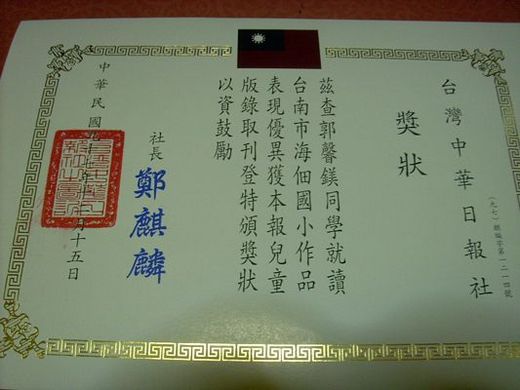 台灣中華日報社
獎狀
茲查郭馨鎂同學就讀
台南市海佃國小作品
表現優異獲本報兒童
版錄取刊登特頒獎狀
以資鼓勵
社長 鄭麒麟
中華民國九十七年 月十五日